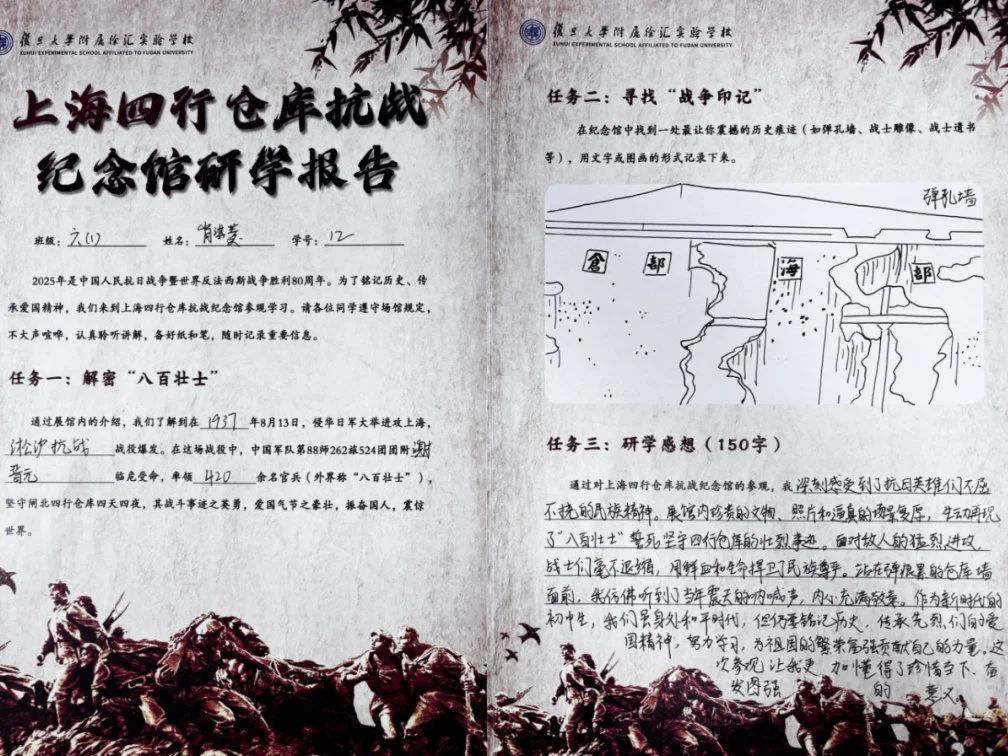 復旦大學附属徐汇实验学校
XUHUI EXPERIMENTAL SCHOOL AFFILIATED TO FUDAN UNIVERSITY
上海四行仓库抗战
纪念馆研学报告
班级：六(1) 姓名：肖淇菱 学号：12
2025年是中国人民抗日战争暨世界反法西斯战争胜利80周年。为了铭记历史、传
承爱国精神，我们来到上海四行仓库抗战纪念馆参观学习。请各位同学遵守场馆规定，
不大声喧哗，认真聆听讲解，备好纸和笔，随时记录重要信息。
任务一：解密“八百壮士”
通过展馆内的介绍，我们了解到在 1937 年8月13日，侵华日军大举进攻上海，
淞沪抗战 战役爆发。在这场战役中，中国军队第88师262旅524团团附谢
晋元 临危受命，率领 420 余名官兵（外界称“八百壮士”），
坚守闸北四行仓库四天四夜，其战斗事迹之英勇，爱国气节之豪壮，振奋国人，震惊
世界。
復旦大學附属徐汇实验学校
XUHUI EXPERIMENTAL SCHOOL AFFILIATED TO FUDAN UNIVERSITY
任务二：寻找“战争印记”
在纪念馆中找到一处最让你震撼的历史痕迹（如弹孔墙、战士雕像、战士遗书
等），用文字或图画的形式记录下来。
弹孔墙
倉 部 海 部
任务三：研学感想（150字）
通过对上海四行仓库抗战纪念馆的参观，我深刻感受到了抗日英雄们不屈
不挠的民族精神。展馆内珍贵的文物、照片和逼真的场景复原，生动再现
了“八百壮士”誓死坚守四行仓库的壮烈事迹。面对敌人的猛烈进攻，
战士们毫不退缩，用鲜血和生命捍卫了民族尊严。站在弹痕累累的仓库墙
面前，我仿佛听到了当年震天的呐喊声，内心充满敬意。作为新时代的
初中生，我们虽身处和平时代，但仍要铭记历史，传承先烈们的爱
国精神，努力学习，为祖国的繁荣富强贡献自己的力量。这
次参观让我更加懂得了珍惜当下、奋
发图强的意义